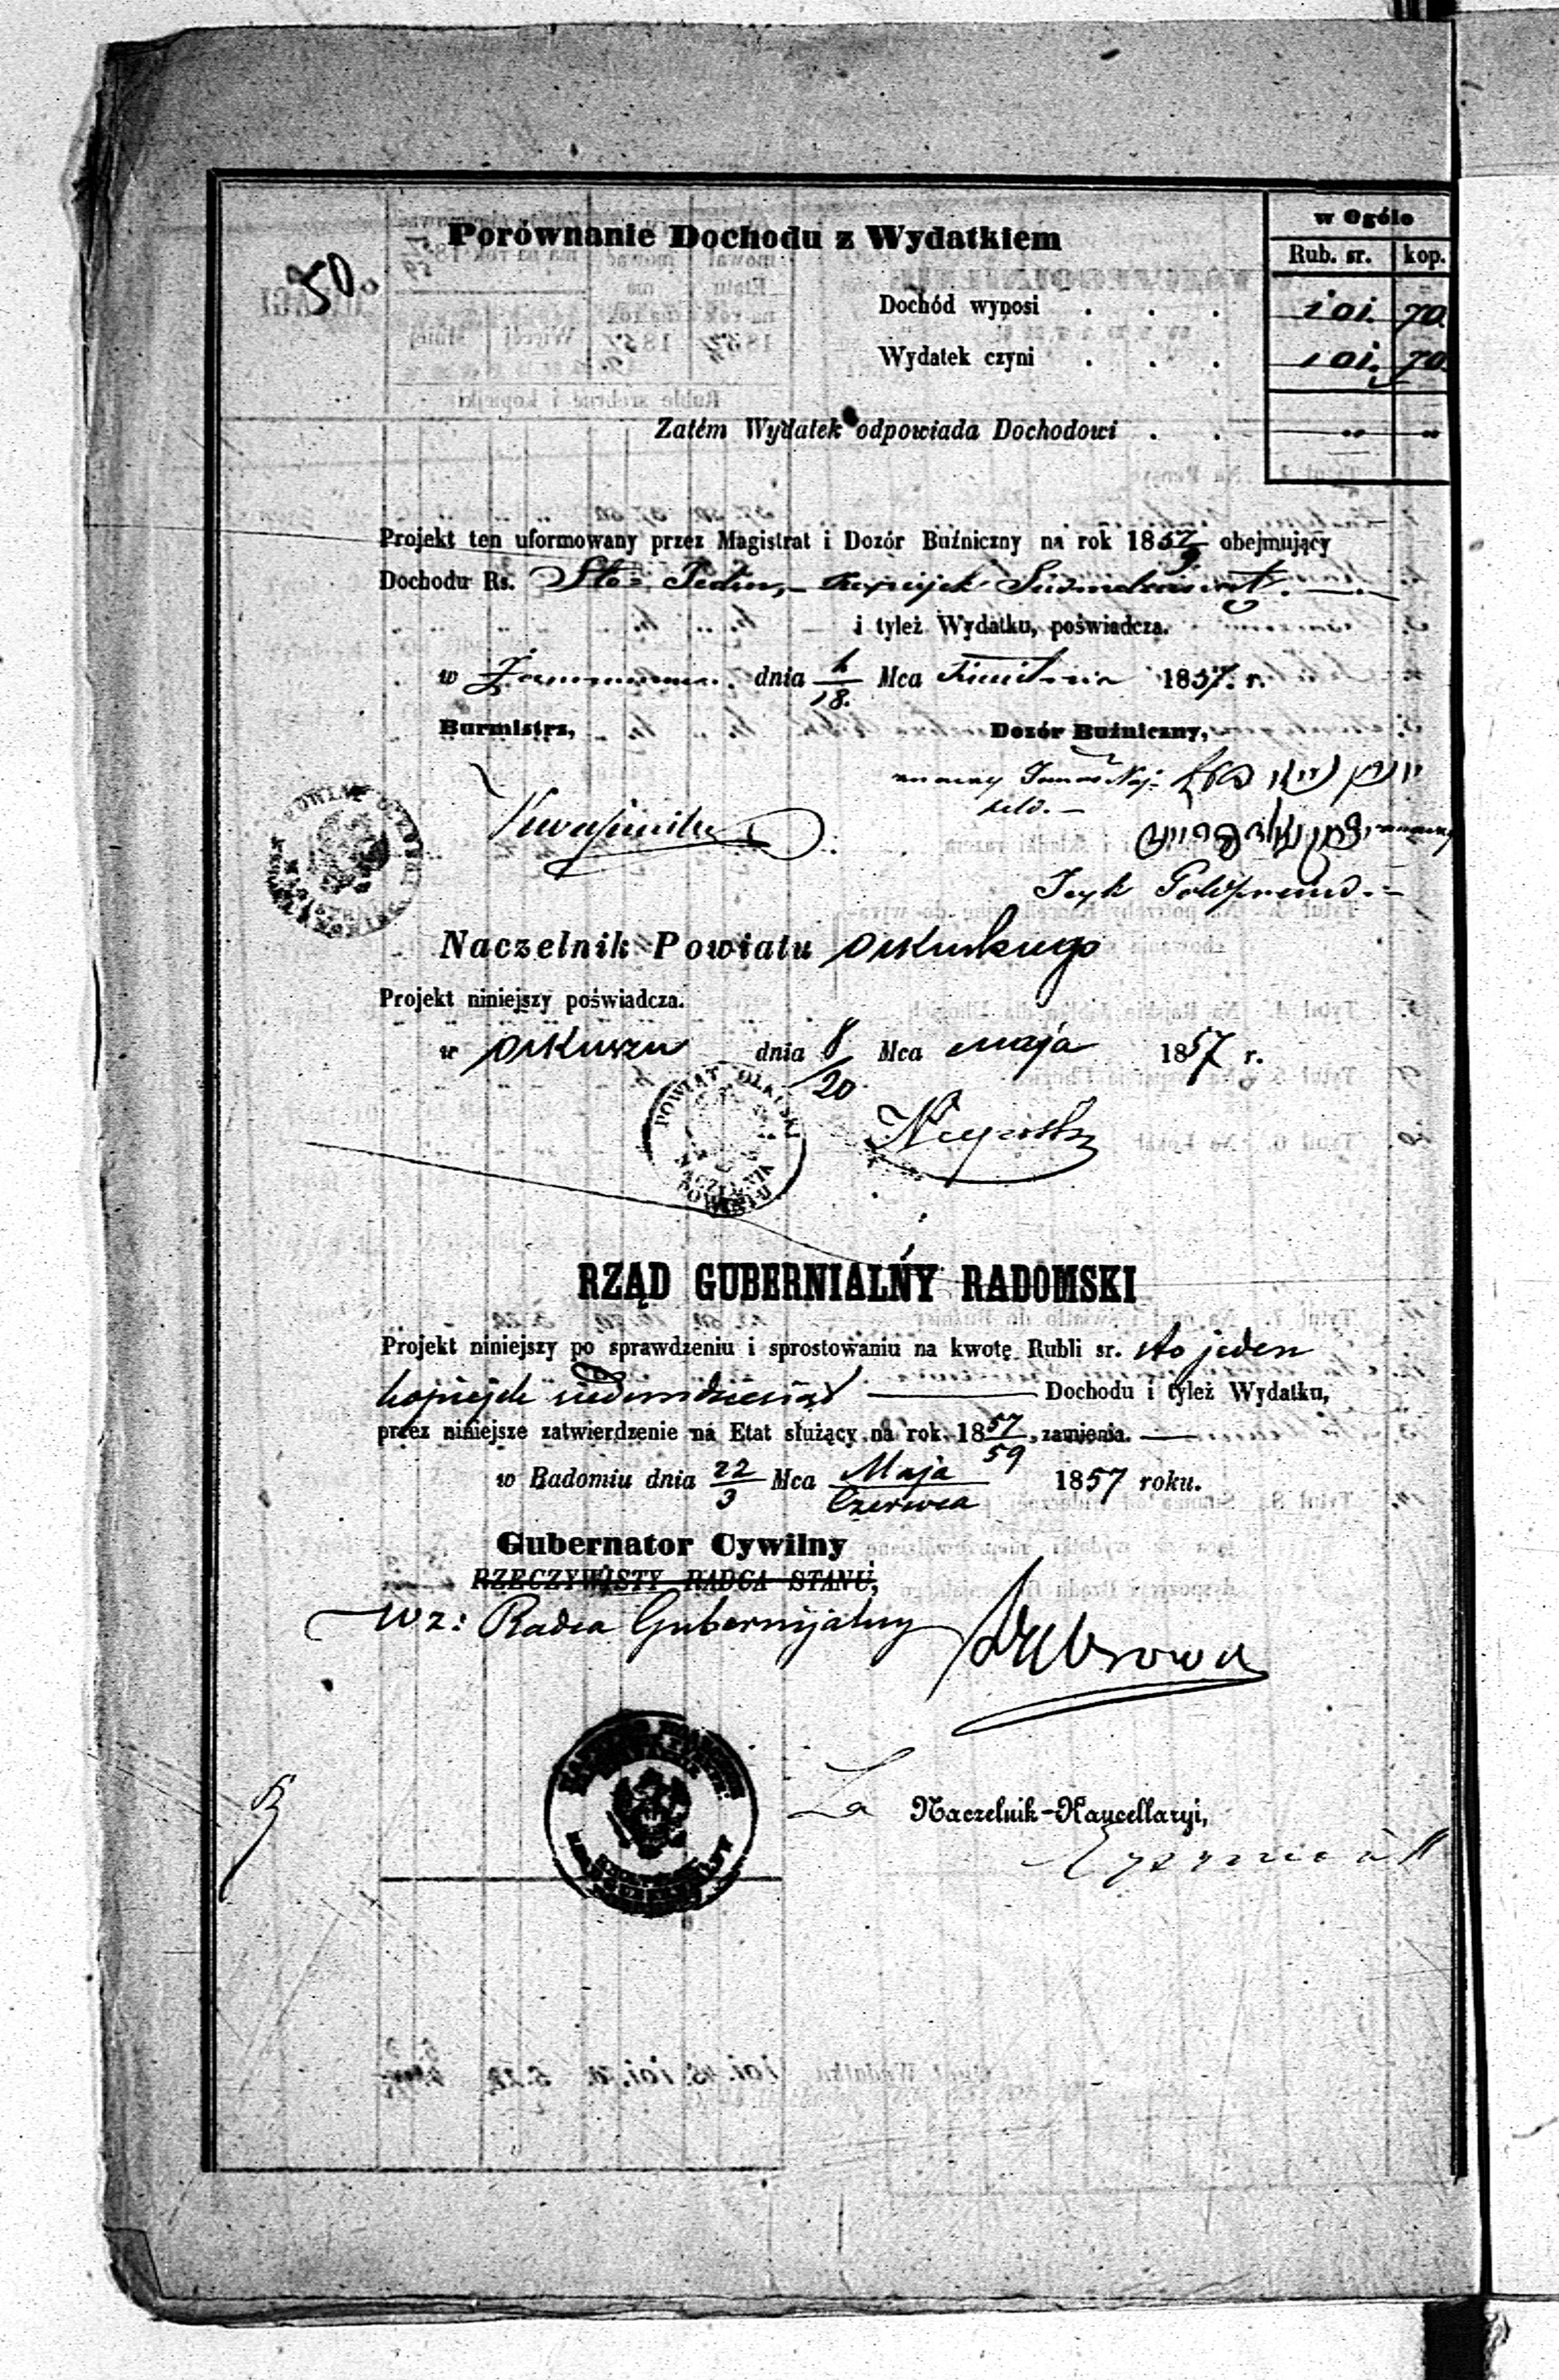 50.
Porównanie Dochodu z Wydatkiem
w Ogóle
Rub. sr. kop.
Dochód wynosi . . . 101. 70.
Wydatek czyni . . . 101. 70.
Zatém Wydatek odpowiada Dochodowi . . " "
Projekt ten uformowany przez Magistrat i Dozór Buźniczny na rok 1857/9 obejmujący
Dochodu Rs. Sto Jeden, kopiejek Siedmdziesiąt. —
i tyleż Wydatku, poświadcza.
w dnia 6/18. Mca Kwietnia 1857. r.
Burmistrz, Dozór Buźniczny,
Naczelnik Powiatu Olkuskiego
Projekt niniejszy poświadcza.
w Olkuszu dnia 8/20 Mca Maja 1857 r.
POWIAT OLKUSKI
NACZELNIK
POWIATU
RZĄD GUBERNIALNY RADOMSKI
Projekt niniejszy po sprawdzeniu i sprostowaniu na kwotę Rubli sr. sto jeden
kopiejek siedemdziesiąt — Dochodu i tyleż Wydatku,
przez niniejsze zatwierdzenie na Etat służący na rok 1857/59, zamienia. —
w Radomiu dnia 22/3 Mca Maja/Czerwca 1857 roku.
Gubernator Cywilny
RZECZYWISTY RADCA STANU,
wz: Radca Gubernijalny
Za Naczelnik-Kancellaryi,